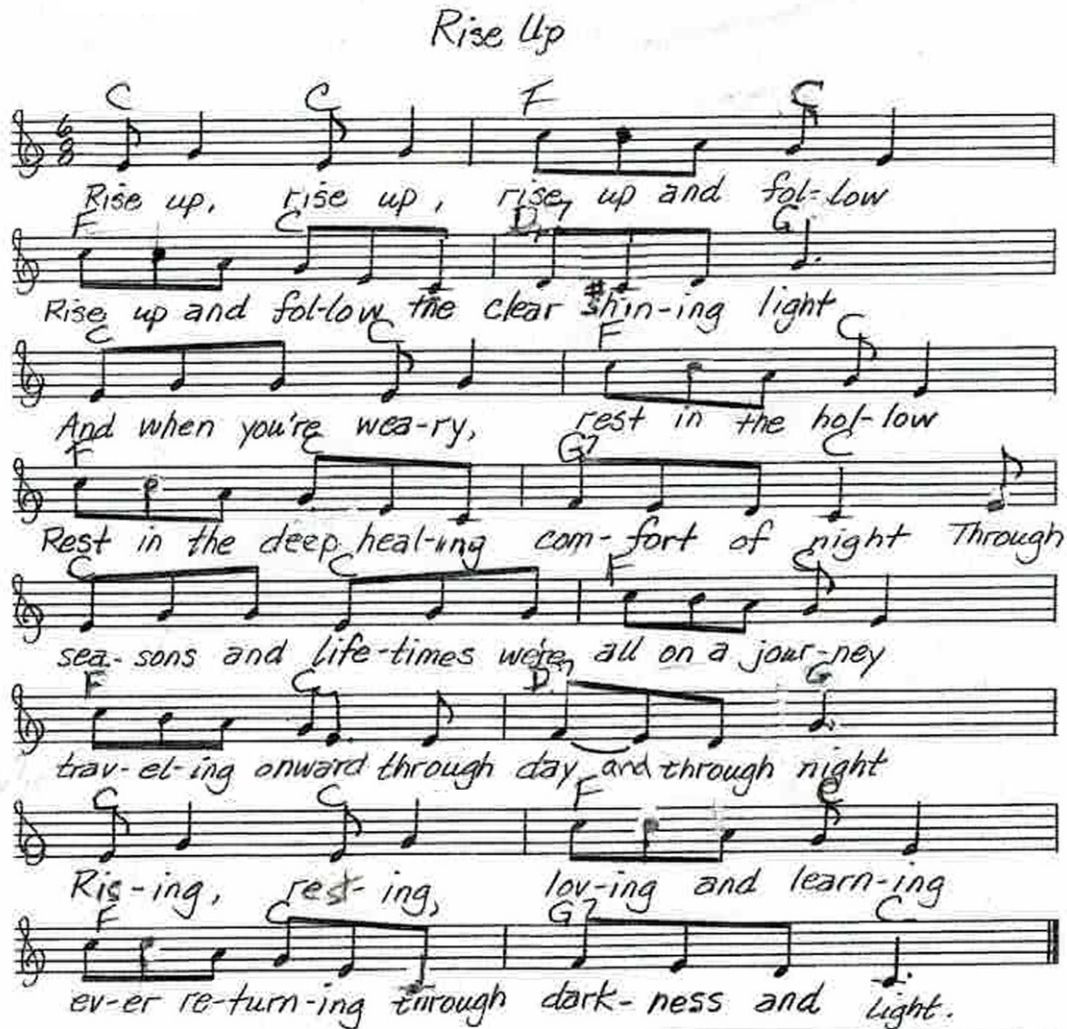 Rise Up
C C F C
6
8
Rise up, rise up, rise up and fol-low
F C D7 G
Rise up and fol-low the clear shin-ing light
C C F C
And when you're wea-ry, rest in the hol-low
F C G7 C
Rest in the deep heal-ing com-fort of night Through
C C F C
sea-sons and life-times we're all on a jour-ney
F C D7 G
trav-el-ing onward through day and through night
C C F C
Ris-ing, rest-ing, lov-ing and learn-ing
F C G7 C
ev-er re-turn-ing through dark-ness and light.